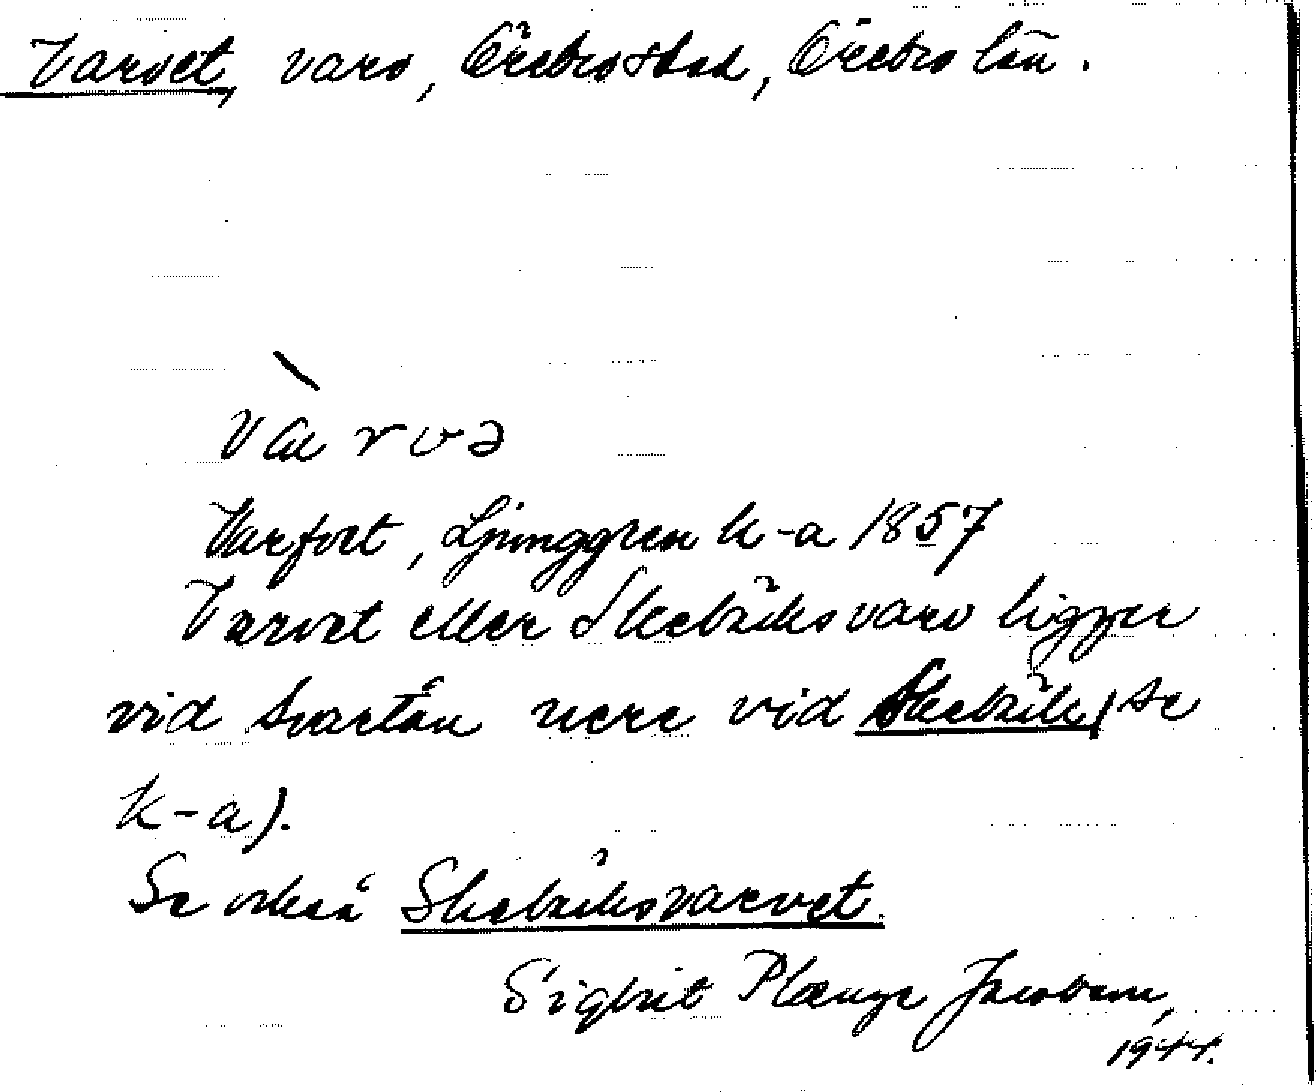 Varvet, varv, Örebro stad, Örebro län.
varvə
Varfvet, Ljunggren k-a 1857
Varvet eller Skebäcksvarv ligger
vid Svartån nere vid Skebäck (se
k-a).
Se också Skebäcksvarvet.
Sigbrit Plænge Jacobson,
1944.